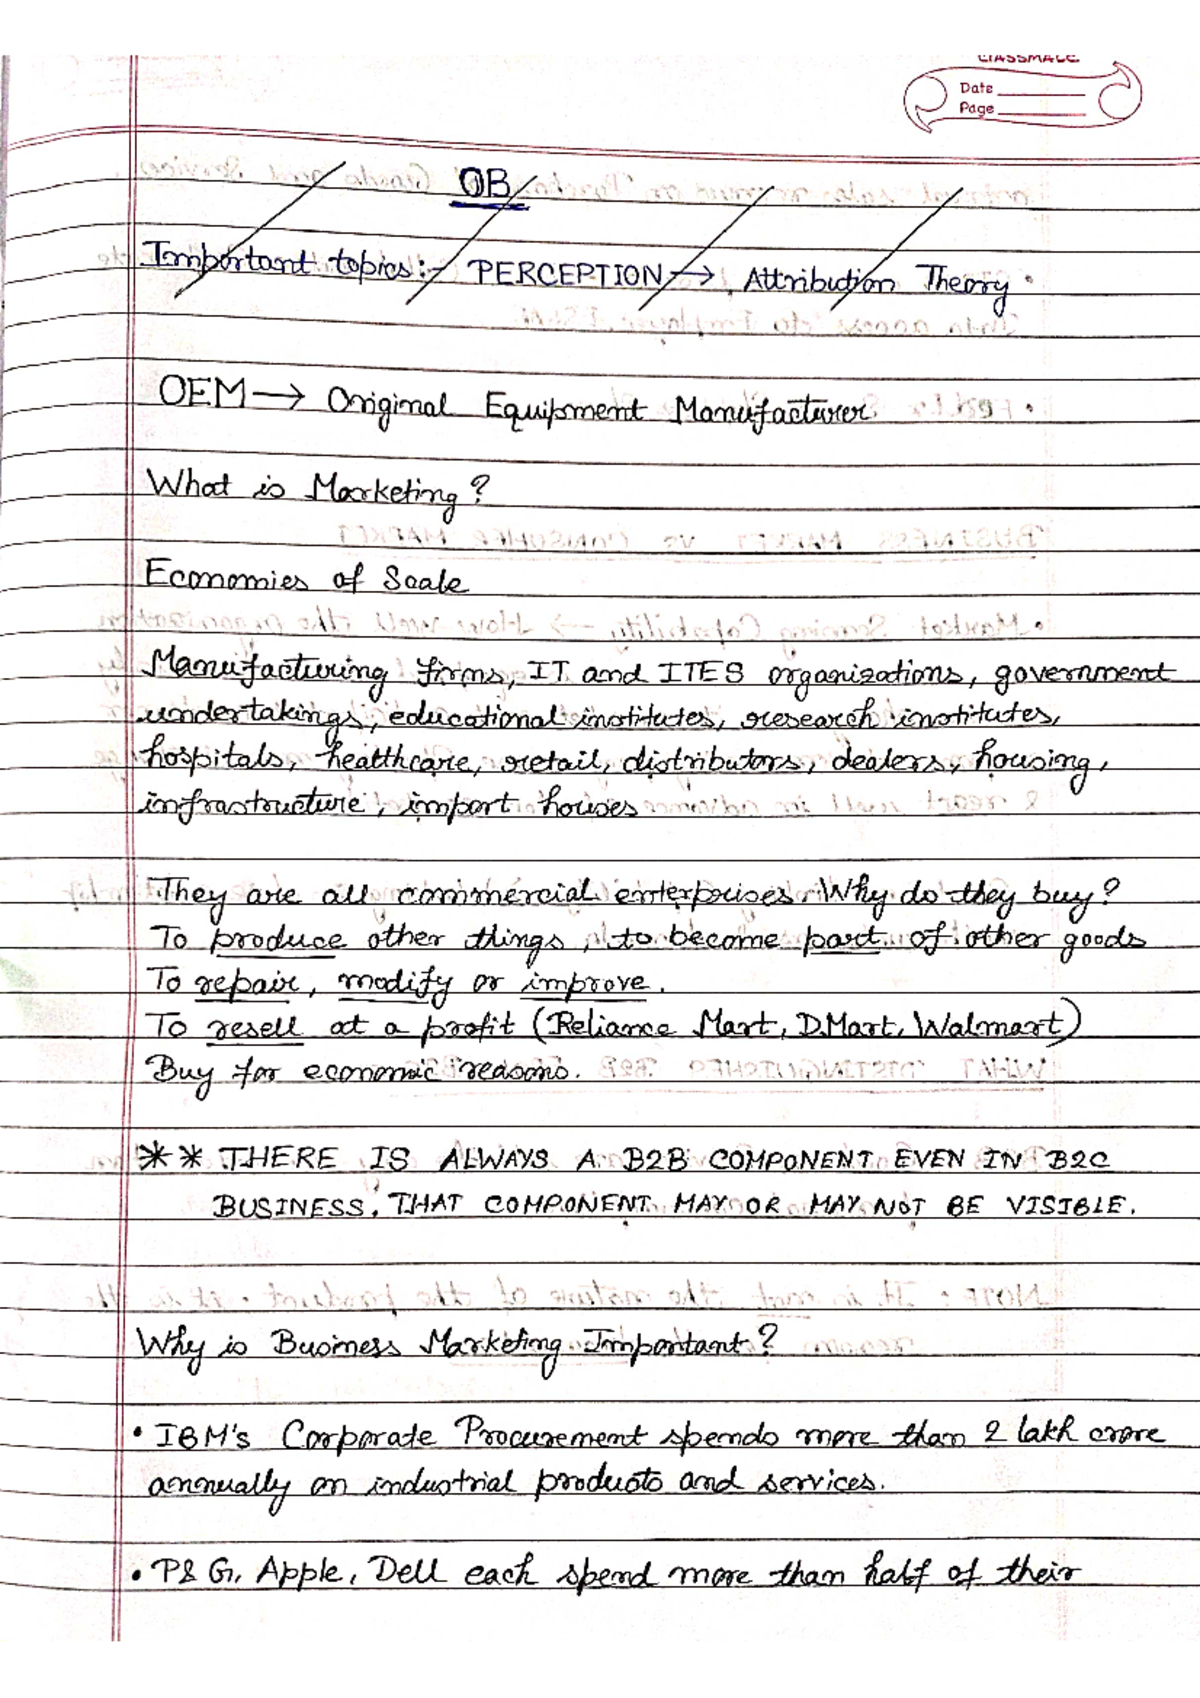 classmate
Date
Page
OB
Important topics:- PERCEPTION → Attribution Theory
OEM → Original Equipment Manufacturer
What is Marketing?
Economies of Scale
Manufacturing firms, IT and ITES organizations, government
undertakings, educational institutes, research institutes,
hospitals, healthcare, retail, distributors, dealers, housing,
infrastructure, import houses
They are all commercial enterprises. Why do they buy?
To produce other things, to become part of other goods
To repair, modify or improve.
To resell at a profit (Reliance Mart, D.Mart, Walmart)
Buy for economic reasons.
** THERE IS ALWAYS A B2B COMPONENT EVEN IN B2C
BUSINESS. THAT COMPONENT MAY OR MAY NOT BE VISIBLE.
Why is Business Marketing Important?
• IBM's Corporate Procurement spends more than 2 lakh crore
annually on industrial products and services.
• P&G, Apple, Dell each spend more than half of their